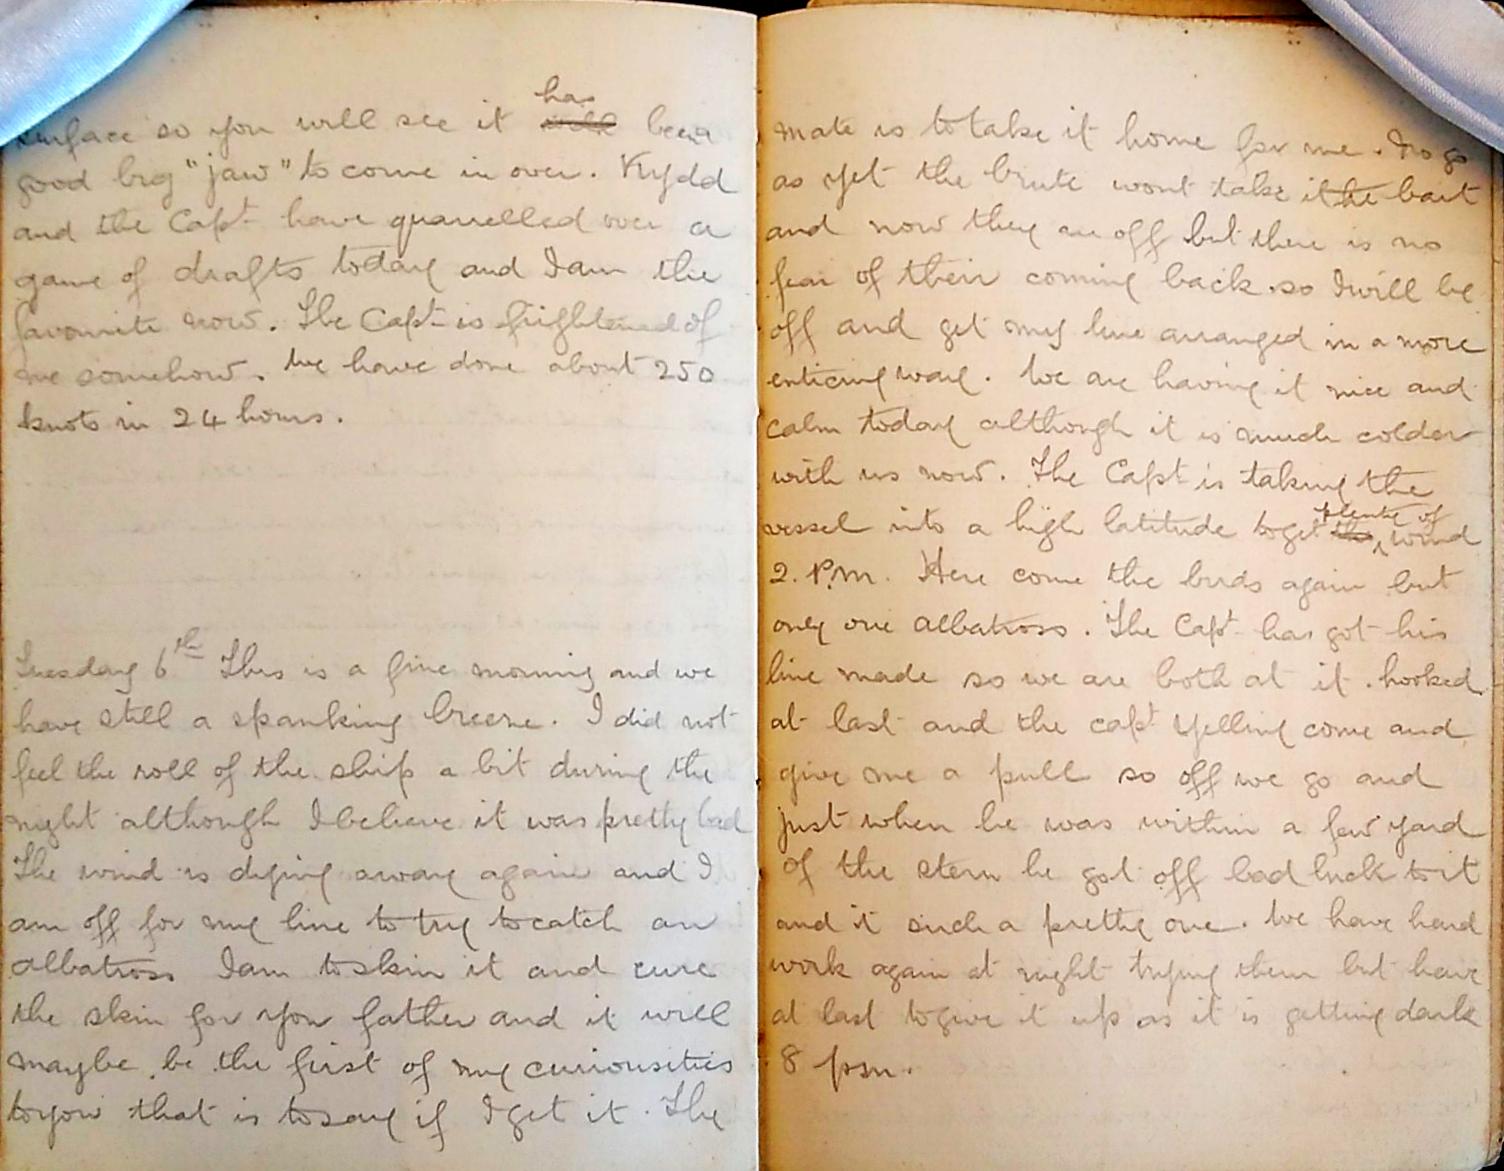 surface so you will see it has been a
good big "jaw" to come in over. Kydd
and the Capt have quarrelled over a
game of drafts today and I am the
favourite now. The Capt is frightened of
me somehow. We have done about 250
knots in 24 hours.
Tuesday 6th This is a fine morning and we
have still a spanking breeze. I did not
feel the roll of the ship a bit during the
night although I believe it was pretty bad
The wind is dying away again and I
am off for my line to try to catch an
albatross I am to skin it and cure
the skin for you father and it will
maybe be the first of my curiousities
to you that is to say if I get it. The
mate is to take it home for me. No go
as yet the brute wont take it the bait
and now they are off but there is no
fear of their coming back so I will be
off and get my line arranged in a more
enticing way. We are having it nice and
calm today although it is much colder
with us now. The Capt is taking the
vessel into a high latitude to get the plenty of wind
2. P.m. Here come the birds again but
only one albatross. The Capt has got his
line made so we are both at it. hooked
at last and the capt yelling come and
give me a pull so off we go and
just when he was within a few yard
of the stern he got off bad luck to it
and it such a pretty one. We have hard
work again at night trying them but have
at last to give it up as it is getting dark
8 pm.